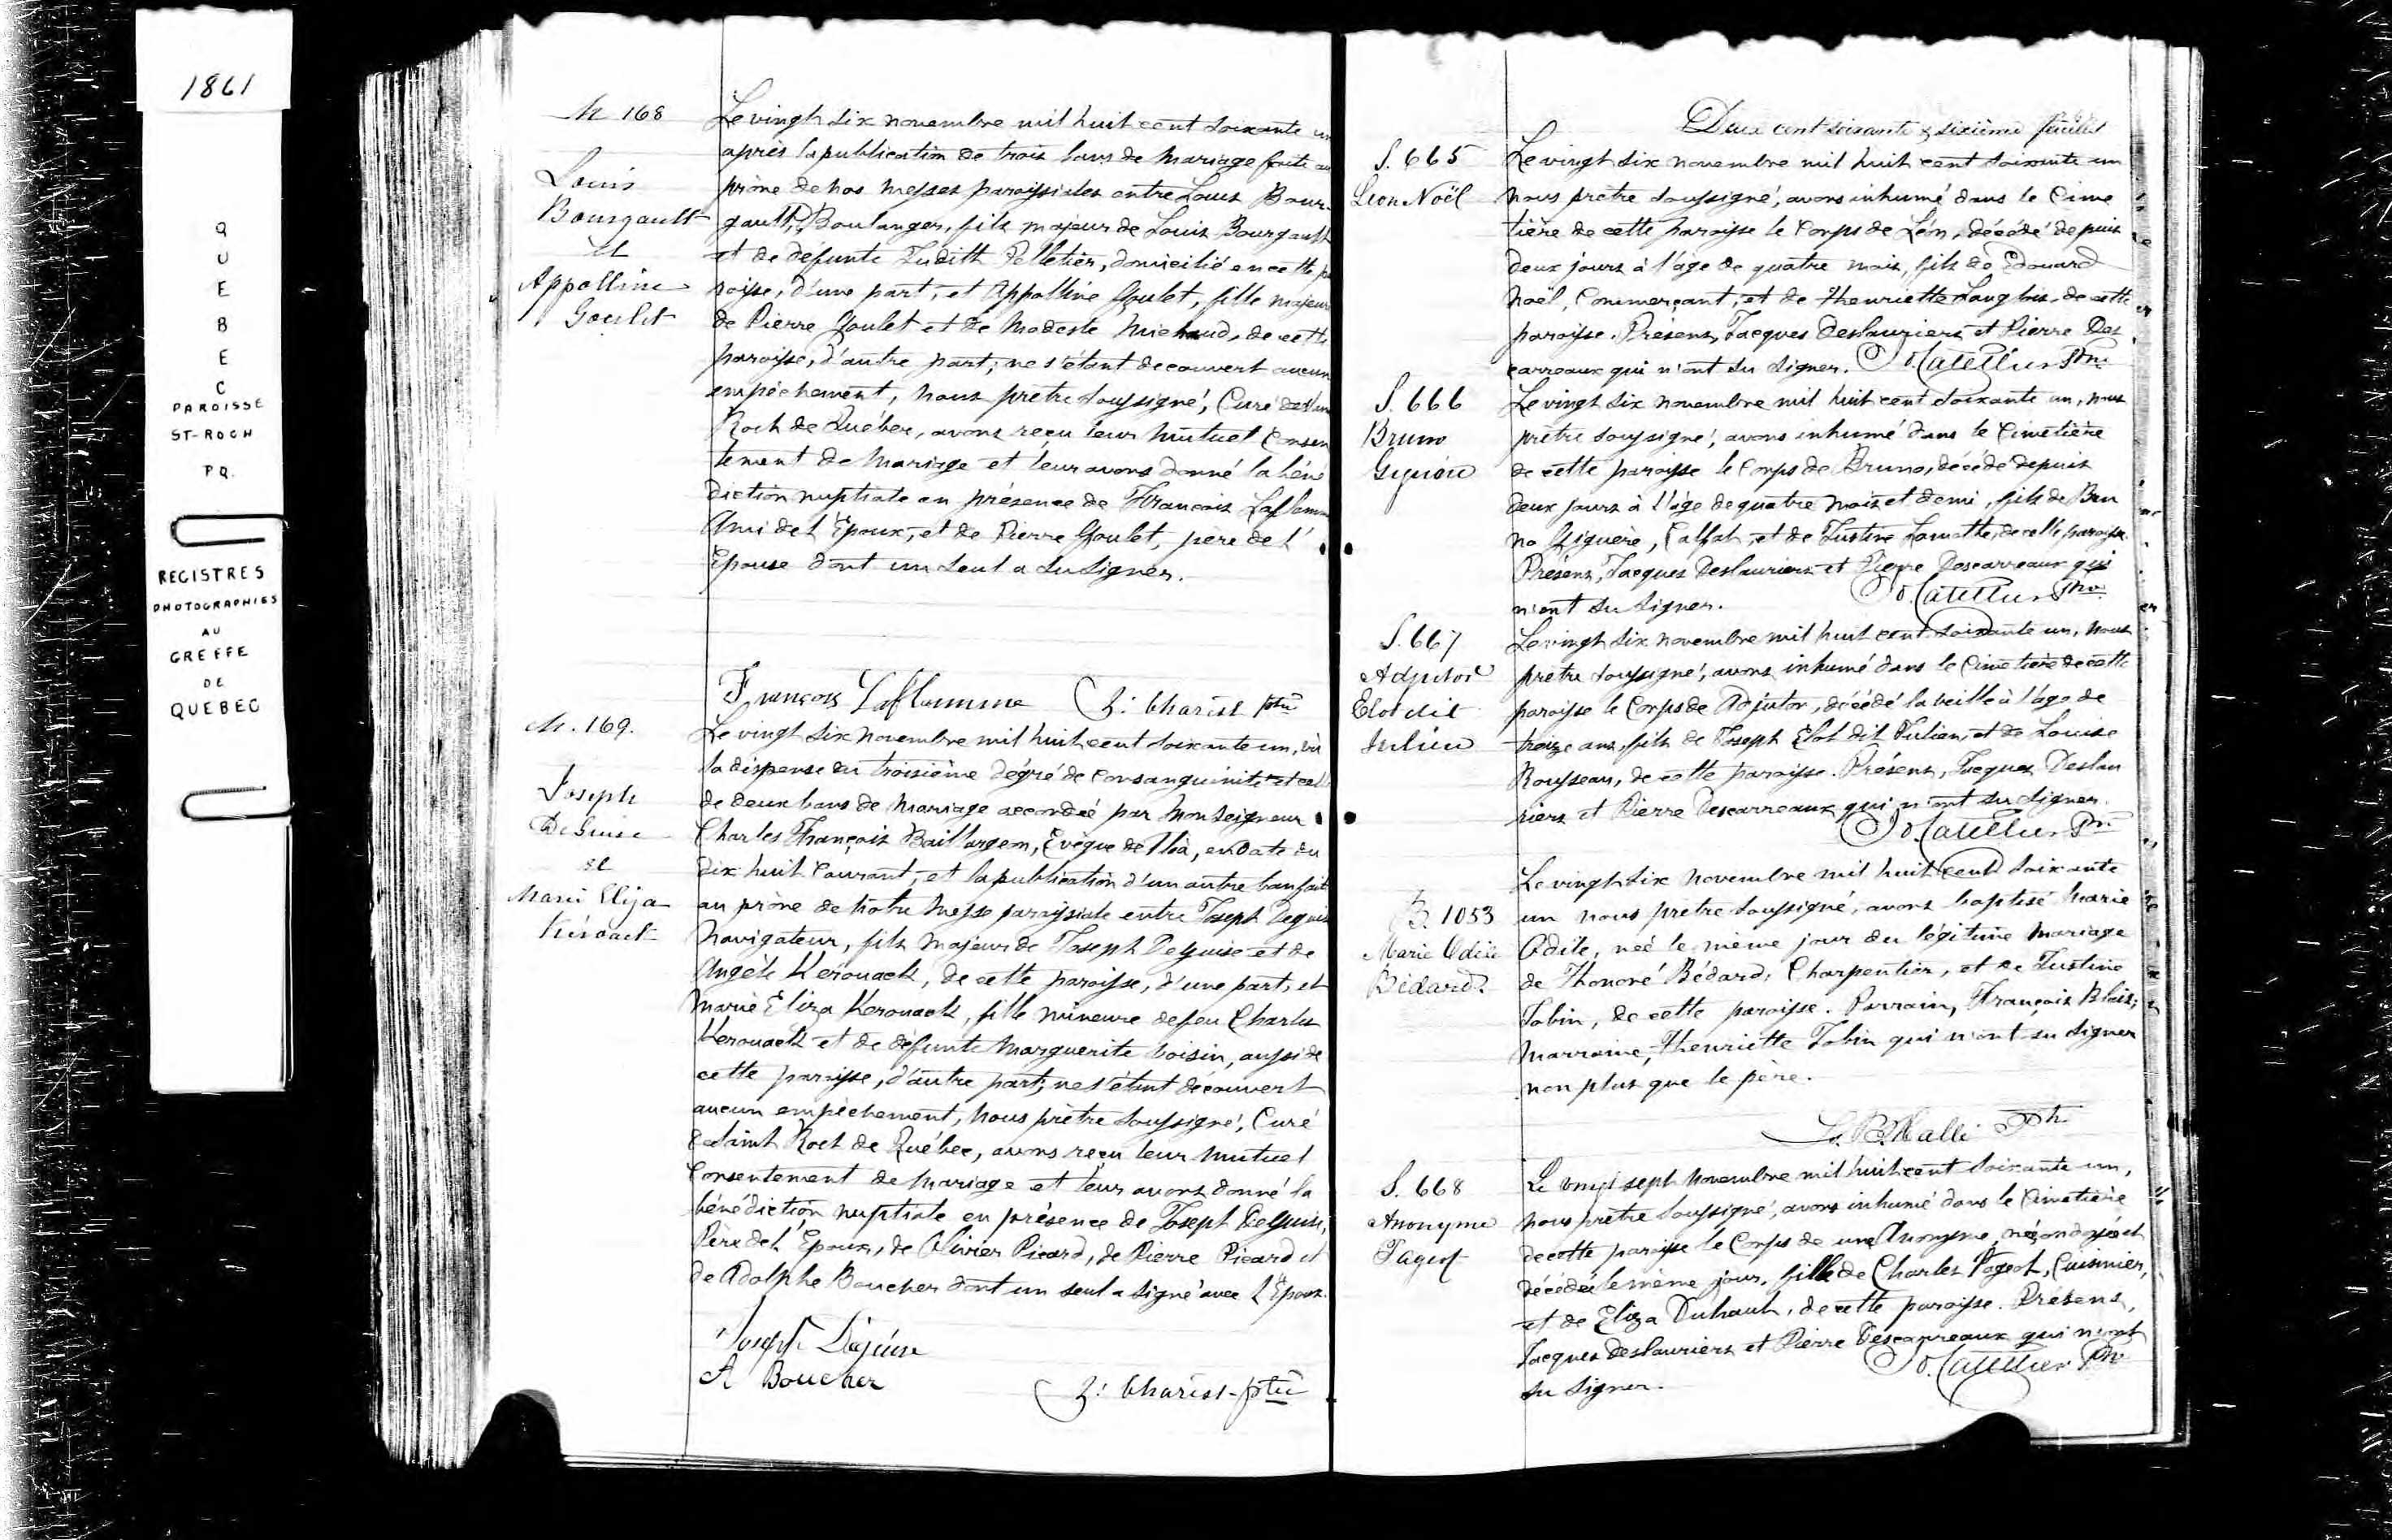 1861
QUEBEC
PAROISSE
ST-ROCH
P.Q.
REGISTRES
PHOTOGRAPHIES
AU
GREFFE
DE
QUEBEC
M 168
Louis
Bourgault
et
Appolline
Goulet
Le vingt six novembre mil huit cent soixante un
après la publication de trois bans de mariage faite au
prône de nos messes paroissiales entre Louis Bour-
gault, Boulanger, fils majeur de Louis Bourgault
et de défunte Judith Pelletier, domicilié en cette pa
roisse, d'une part, et Appolline Goulet, fille majeure
de Pierre Goulet et de Modeste Michaud, de cette
paroisse, d'autre part; ne s'étant découvert aucun
empêchement, nous prêtre soussigné, Curé de Saint
Roch de Québec, avons reçu leur mutuel consen
tement de mariage et leur avons donné la béné
diction nuptiale en présence de François Laflamme
Ami de l'Epoux, et de Pierre Goulet, père de l'
Epouse dont un seul a su signer.
François Laflamme Z: Charest ptre
M. 169.
Joseph
DeGuise
et
Marie Eliza
Kérouack
Le vingt six novembre mil huit cent soixante un, vu
la dispense du troisième dégré de consanguinité et celle
de deux bans de mariage accordée par Monseigneur
Charles François Baillargeon, Evêque de Tloa, en date du
dix huit Courant, et la publication d'un autre ban fait
au prône de notre messe paroissiale entre Joseph Deguise
Navigateur, fils majeur de Joseph Deguise et de
Angèle Kerouack, de cette paroisse, d'une part, et
Marie Eliza Kerouack, fille mineure de feu Charles
Kerouack et de défunte Marguerite Voisin, aussi de
cette paroisse, d'autre part; ne s'étant découvert
aucun empêchement, nous prêtre soussigné, Curé
de Saint Roch de Québec, avons reçu leur mutuel
Consentement de mariage et leur avons donné la
bénédiction nuptiale en présence de Joseph DeGuise,
Père de l'Epoux, de Olivier Picard, de Pierre Picard et
de Adolphe Boucher dont un seul a signé avec l'Epoux.
Joseph Dejuise
A Boucher
Z: Charest-ptre
Deux cent soixante & sixième feuillet
S. 665
Leon Noël
Le vingt six novembre mil huit cent soixante un
nous prêtre soussigné, avons inhumé dans le Cime
tière de cette paroisse le Corps de Léon, décédé depuis
deux jours à l'âge de quatre mois, fils de Edouard
Noël, Commerçant, et de Henriette Langlois, de cette
paroisse. Présens, Jacques Deslauriers et Pierre Des
carreaux qui n'ont su signer. Ptre
S. 666
Bruno
Giguère
Le vingt six novembre mil huit cent soixante un, nous
prêtre soussigné, avons inhumé dans le Cimetière
de cette paroisse le Corps de Bruno, décédé depuis
deux jours à l'âge de quatre mois et demi, fils de Bru
no Giguère, Calfat, et de Justine Lamothe, de cette paroisse.
Présens, Jacques Deslauriers et Pierre Descarreaux qui
n'ont su signer. Ptre
S. 667
Adjutor
Elot dit
Julien
Le vingt six novembre mil huit cent soixante un, nous
prêtre soussigné, avons inhumé dans le Cimetière de cette
paroisse le Corps de Adjutor, décédé la veille à l'âge de
treize ans, fils de Joseph Elot dit Julien, et de Louise
Rousseau, de cette paroisse. Présens, Jacques Deslau
riers et Pierre Descarreaux qui n'ont su signer.
Ptre
B. 1053
Marie Odile
Bédard
Le vingt six novembre mil huit cent soixante
un nous prêtre soussigné, avons baptisé Marie
Odile, née le même jour du légitime mariage
de Honoré Bédard, Charpentier, et de Justine
Tobin, de cette paroisse. Parrain, François Blais;
Marraine, Henriette Tobin qui n'ont su signer
non plus que le père.
Ptre
S. 668
Anonyme
Pageot
Le vingt sept novembre mil huit cent soixante un,
nous prêtre soussigné, avons inhumé dans le Cimetière
de cette paroisse le Corps de une Anonyme, née, ondoyée et
décédée le même jour, fille de Charles Pageot, Cuisinier,
et de Eliza Duhault, de cette paroisse. Présens,
Jacques Deslauriers et Pierre Descarreaux qui n'ont
su signer. Ptre